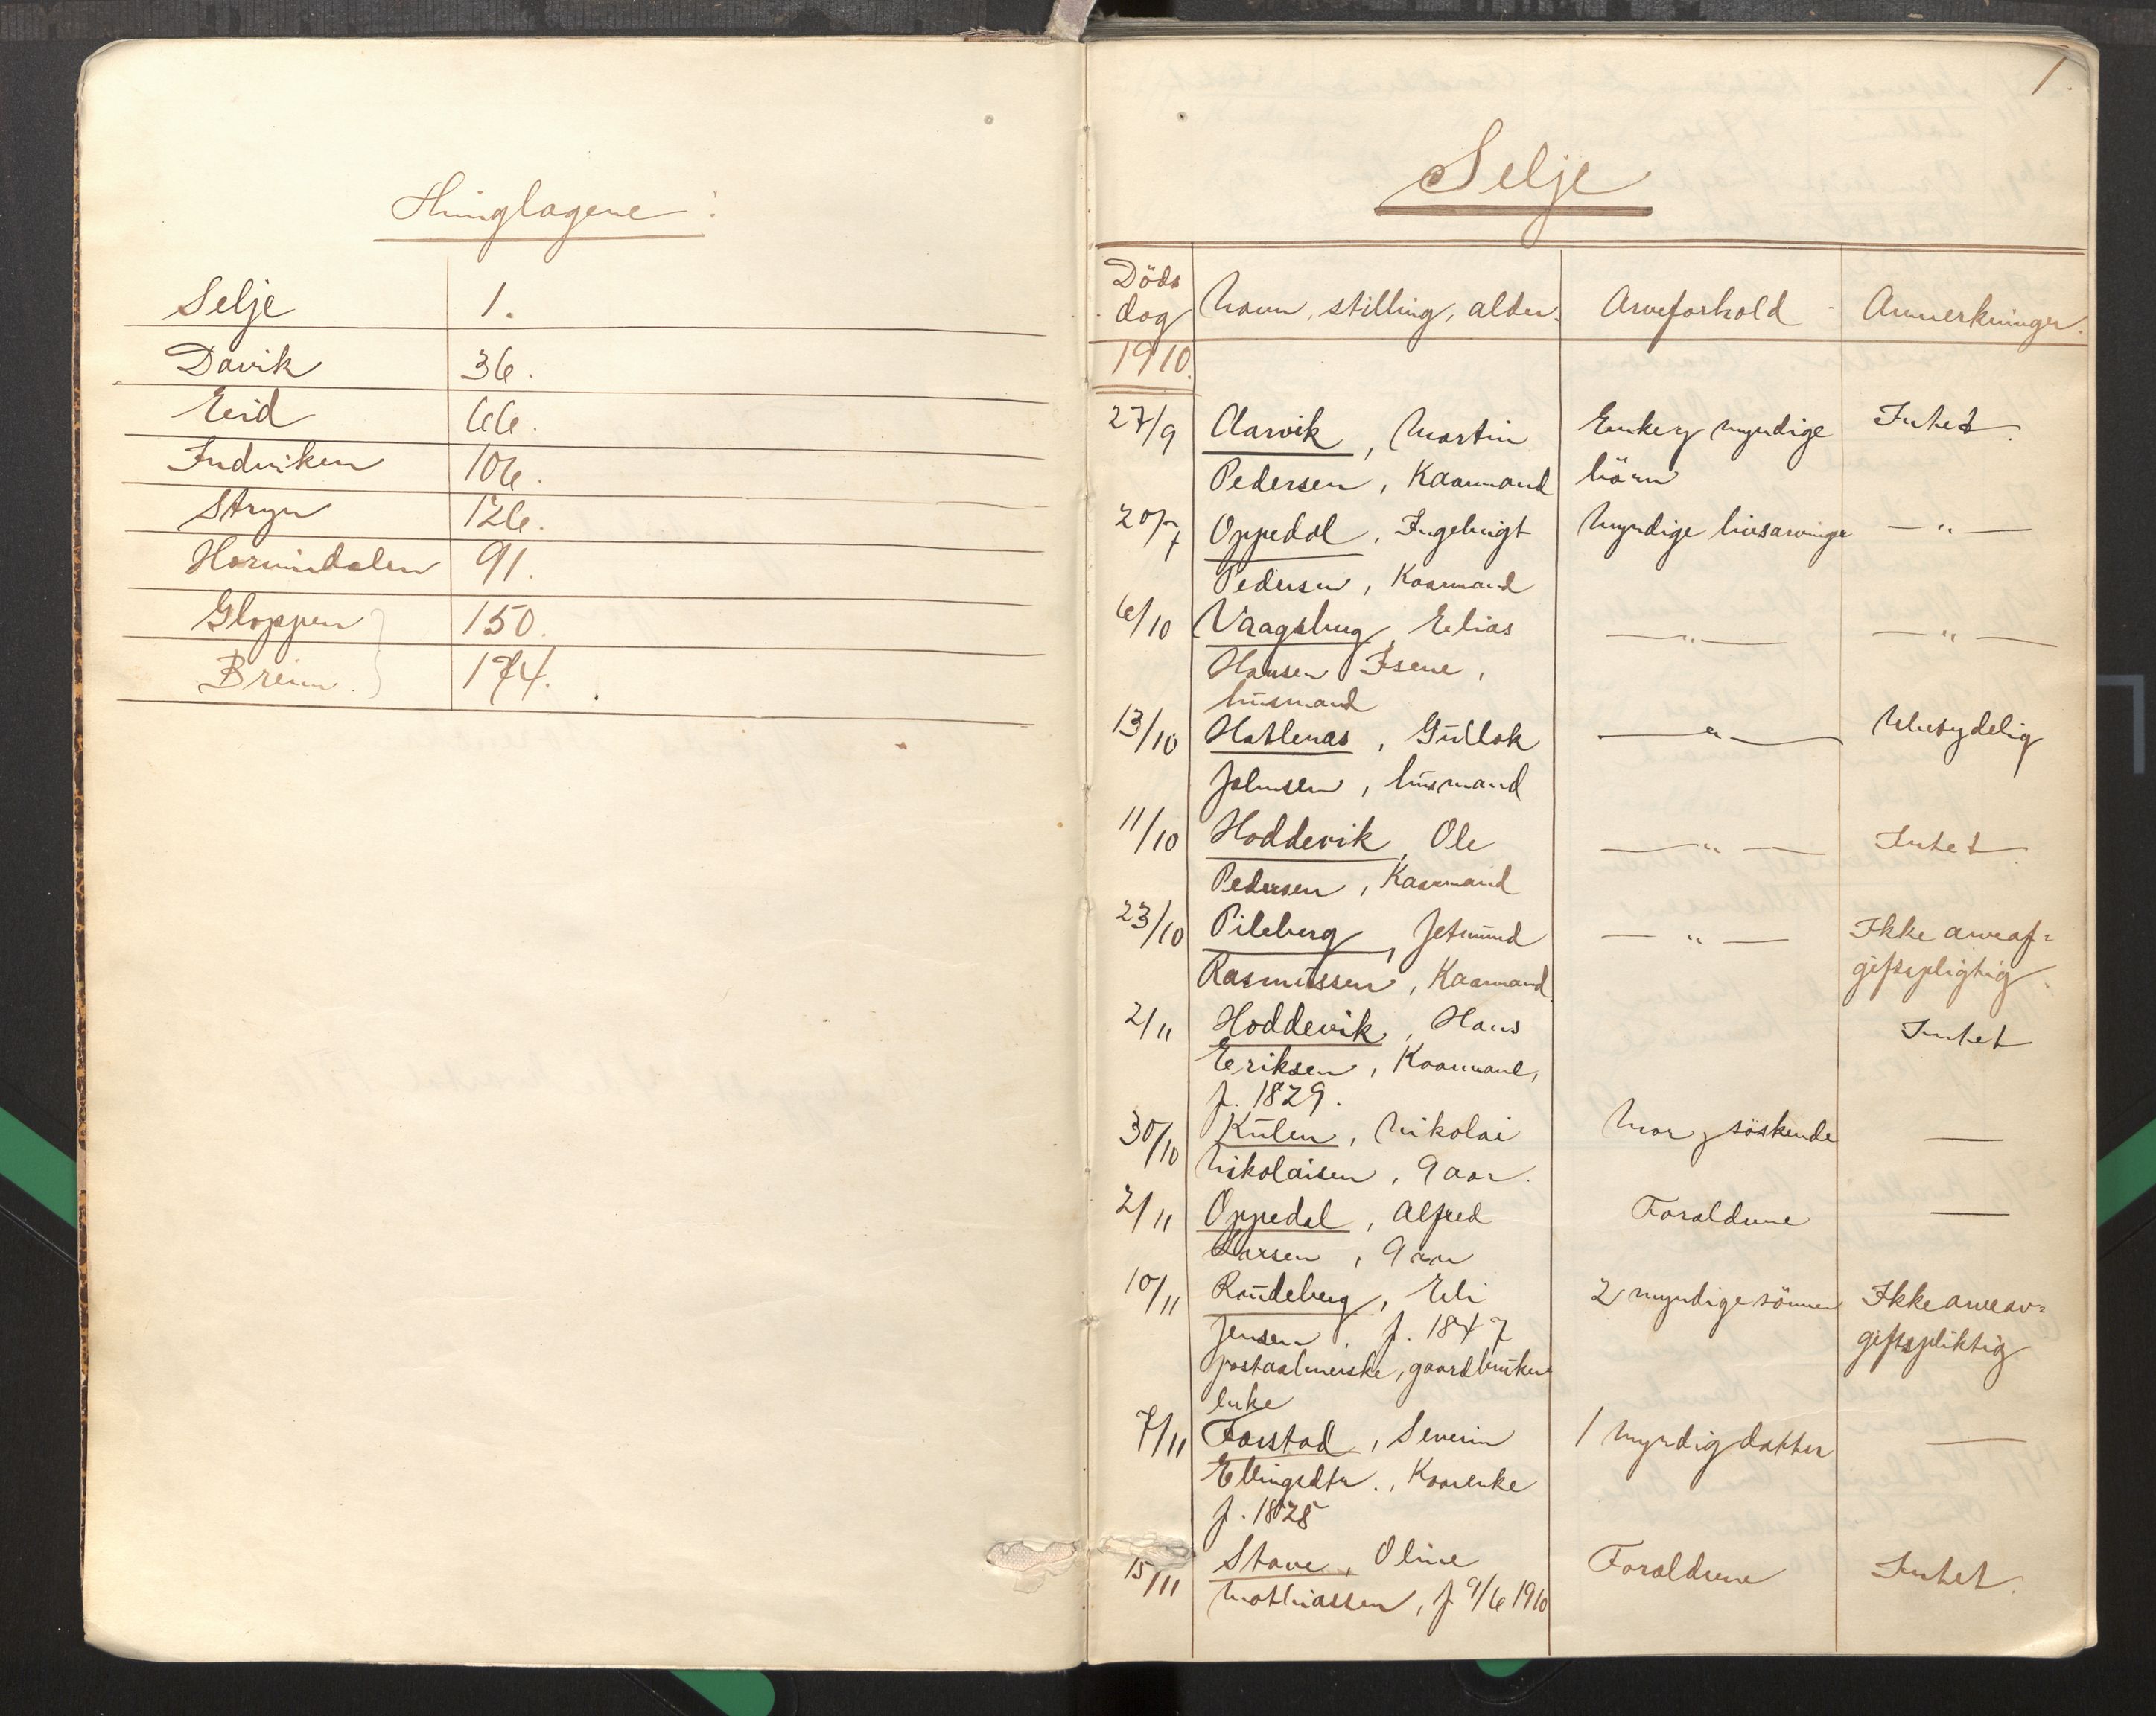 Thinglagene:
Selje 1.
Davik 36.
Eid 66.
Indviken 106.
Stryn 126.
Hornindalen 91.
Gloppen 150.
Breim 174.
1.
Selje
Döds Navn, stilling, alder. Arveforhold Anmerkninger.
dag
1910.
27/9 Aarvik, Martin Enke og myndige Intet.
Pedersen, Kaarmand börn
20/7 Oppedal, Ingebrigt Myndige livsarvinge — " —
Pedersen, Kaarmand
6/10 Vaagsberg, Elias — " — — " —
Hansen Isene,
husmand
13/10 Hatlenes, Gullak — " — Ubetydelig
Johnsen, husmand
11/10 Hoddevik, Ole — " — Intet.
Pedersen, Kaarmand
23/10 Pileberg, Jetmund — " — Ikke arveaf=
Rasmussen, Kaarmand. giftspligtig.
2/11 Hoddevik, Hans Intet
Eriksen, Kaarmand,
f. 1829.
30/10 Kulen, Nikolai Mor og söskende —
Nikolaisen, 9 aar.
2/11 Oppedal, Alfred Foraldrene —
Larsen, 9 aar
10/11 Raudeberg, Eli 2 myndige sönner Ikke arveav=
Jensen, f. 1847 giftspliktig
postaabnerske, gaardbruker
enke
7/11 Farstad, Severin 1 Myndig datter —
Ellingsdtr., Kaarenke
f. 1828
15/11 Stave, Oline Foraldrene Intet.
Mathiassen, f 9/6 1910